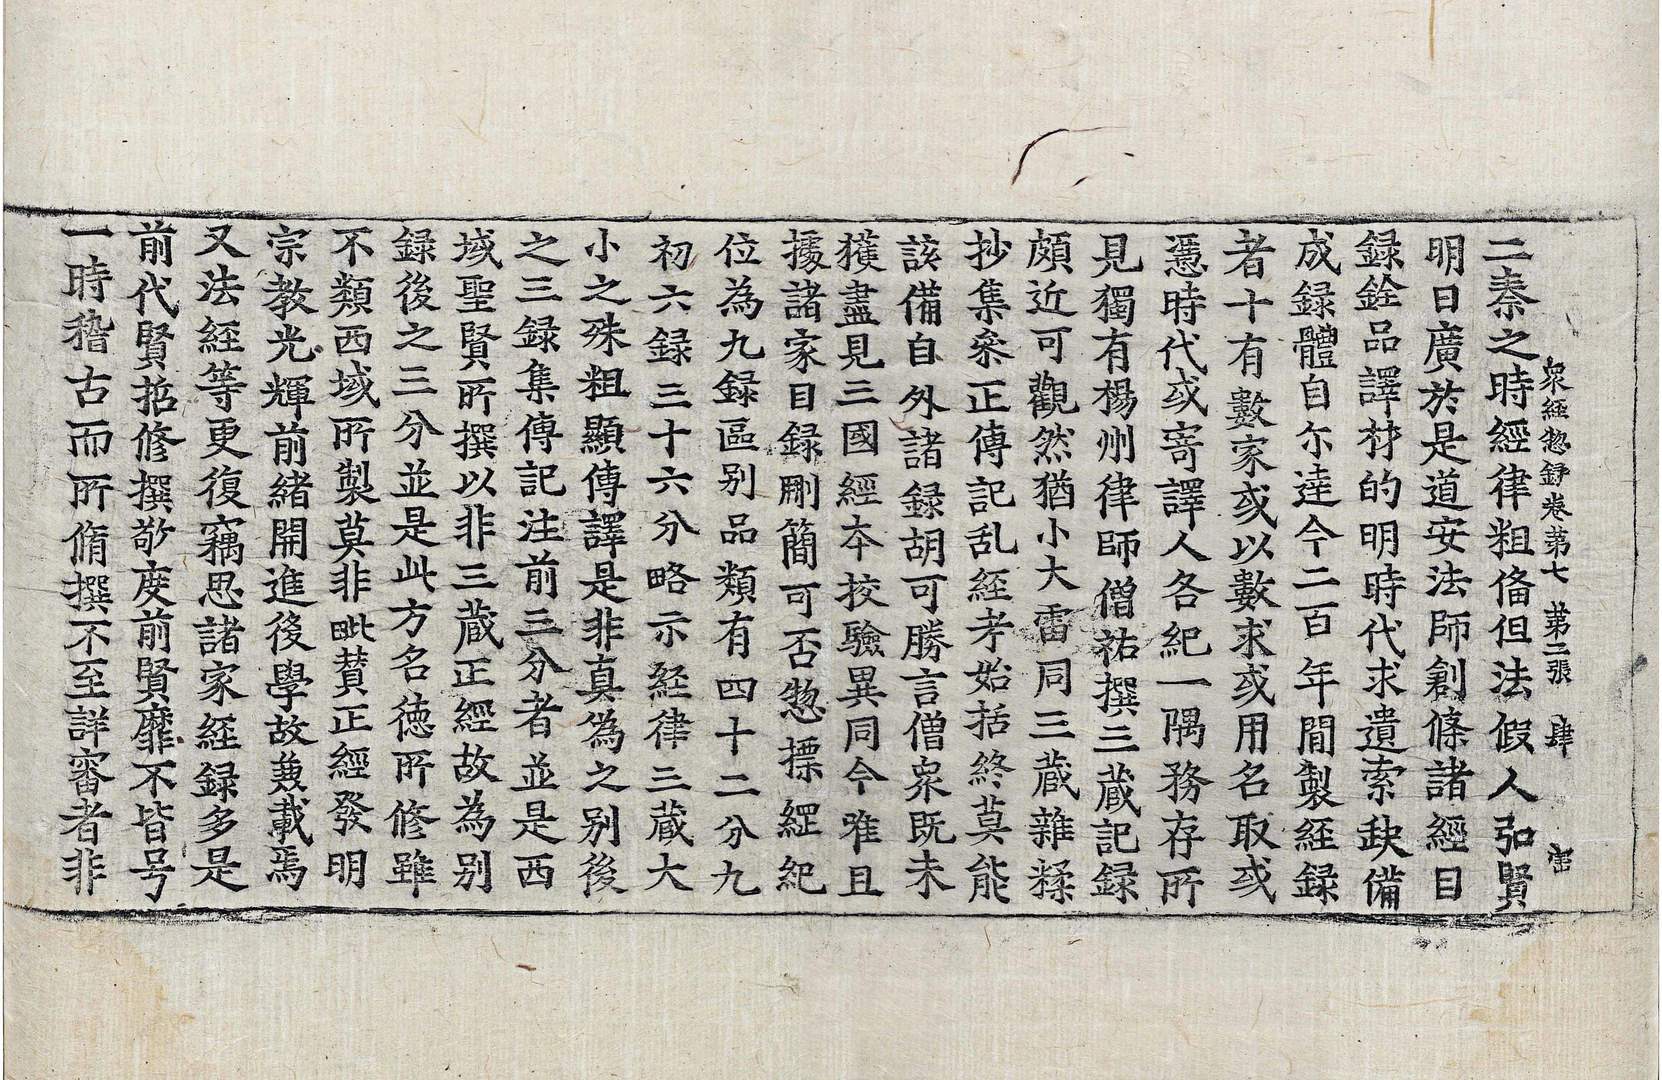 衆経惣録卷第七 第二張 肆 宻
二秦之時經律粗俻但法假人弘賢
明日廣於是道安法師創條諸經目
録銓品譯材的明時代求遺索缺備
成録體自尓達今二百年間製経録
者十有數家或以數求或用名取或
憑時代或寄譯人各紀一隅務存所
見獨有楊州律師僧祐撰三藏記録
頗近可觀然猶小大雷同三藏雜糅
抄集叅正傳記乱経考始括終莫能
該備自外諸録胡可勝言僧衆既未
獲盡見三國經本挍驗異同今唯且
據諸家目録刪簡可否惣摽綱紀
位為九録區别品類有四十二分九
初六録三十六分略示経律三藏大
小之殊粗顯傳譯是非真偽之别後
之三録集傳記注前三分者並是西
域聖賢所撰以非三藏正經故為别
録後之三分並是此方名徳所修雖
不類西域所製莫非毗賛正經發明
宗教光輝前緒開進後學故兼載焉
又法経等更復竊思諸家経録多是
前代賢哲修撰敬度前賢靡不皆号
一時稽古而所脩撰不至詳審者非